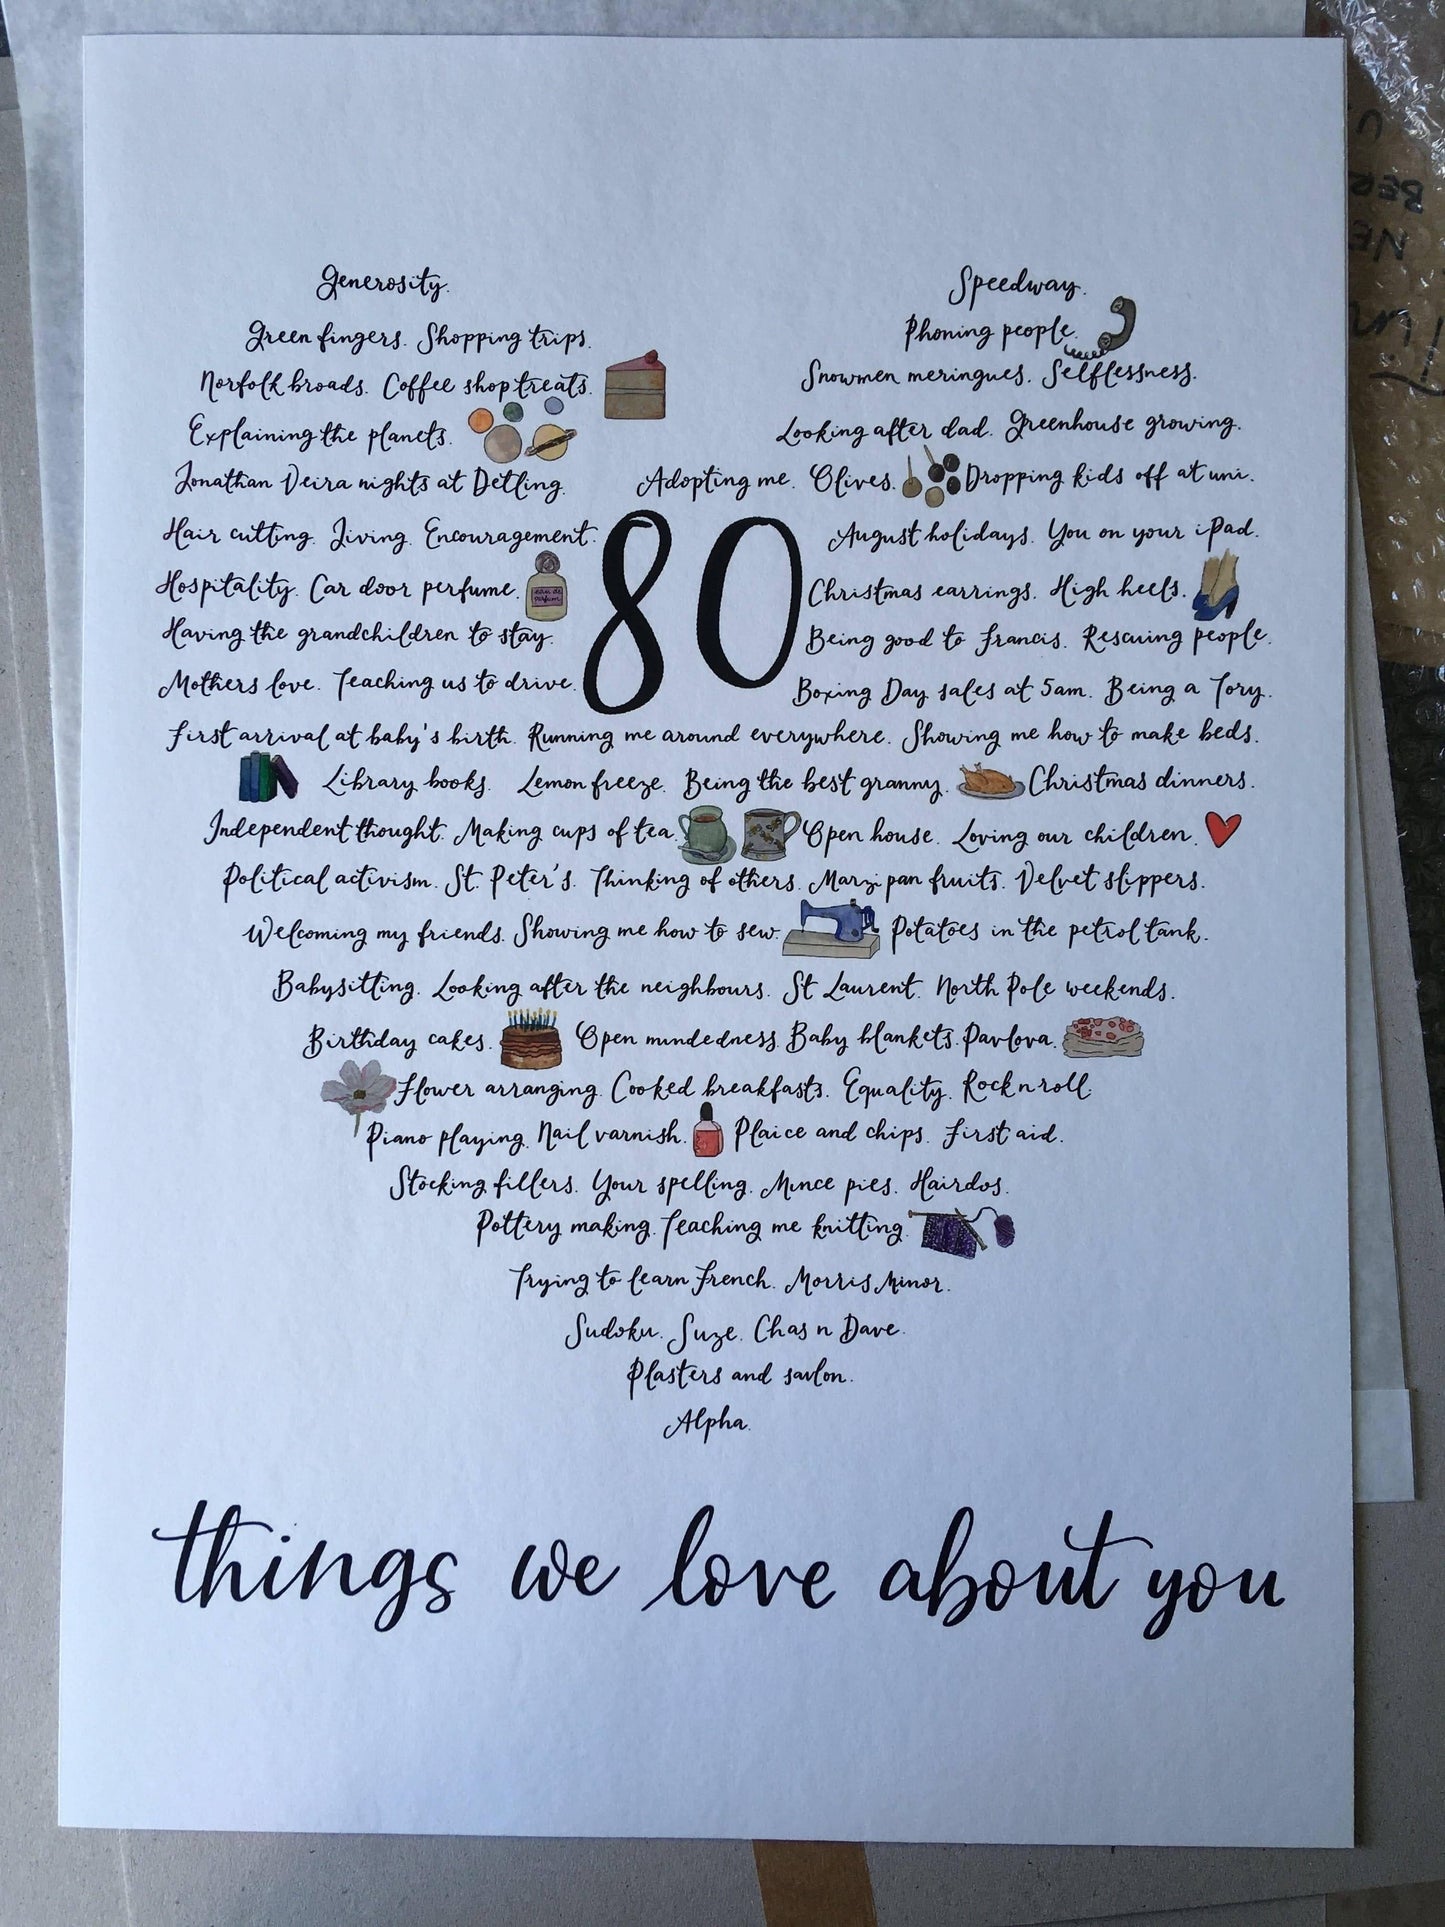 Generosity.
Speedway.
Green fingers. Shopping trips.
Phoning people.
Norfolk broads. Coffee shop treats.
Snowmen meringues. Selflessness.
Explaining the planets.
Looking after dad. Greenhouse growing.
Jonathan Veira nights at Detling.
Adopting me. Olives. Dropping kids off at uni.
Hair cutting. Living. Encouragement.
80
August holidays. You on your iPad.
Hospitality. Car door perfume.
eau de parfum
Christmas earrings. High heels.
Having the grandchildren to stay.
Being good to Francis. Rescuing people.
Mothers love. Teaching us to drive.
Boxing Day sales at 5am. Being a Tory.
First arrival at baby's birth. Running me around everywhere. Showing me how to make beds.
Library books. Lemon freeze. Being the best granny. Christmas dinners.
Independent thought. Making cups of tea. Open house. Loving our children.
Political activism. St. Peter's. Thinking of others. Marzipan fruits. Velvet slippers.
Welcoming my friends. Showing me how to sew. Potatoes in the petrol tank.
Babysitting. Looking after the neighbours. St Laurent. North Pole weekends.
Birthday cakes. Open mindedness. Baby blankets. Pavlova.
Flower arranging. Cooked breakfasts. Equality. Rock n roll.
Piano playing. Nail varnish. Plaice and chips. First aid.
Stocking fillers. Your spelling. Mince pies. Hairdos.
Pottery making. Teaching me knitting.
Trying to learn French. Morris Minor.
Sudoku. Suze. Chas n Dave.
Plasters and savlon.
Alpha.
things we love about you